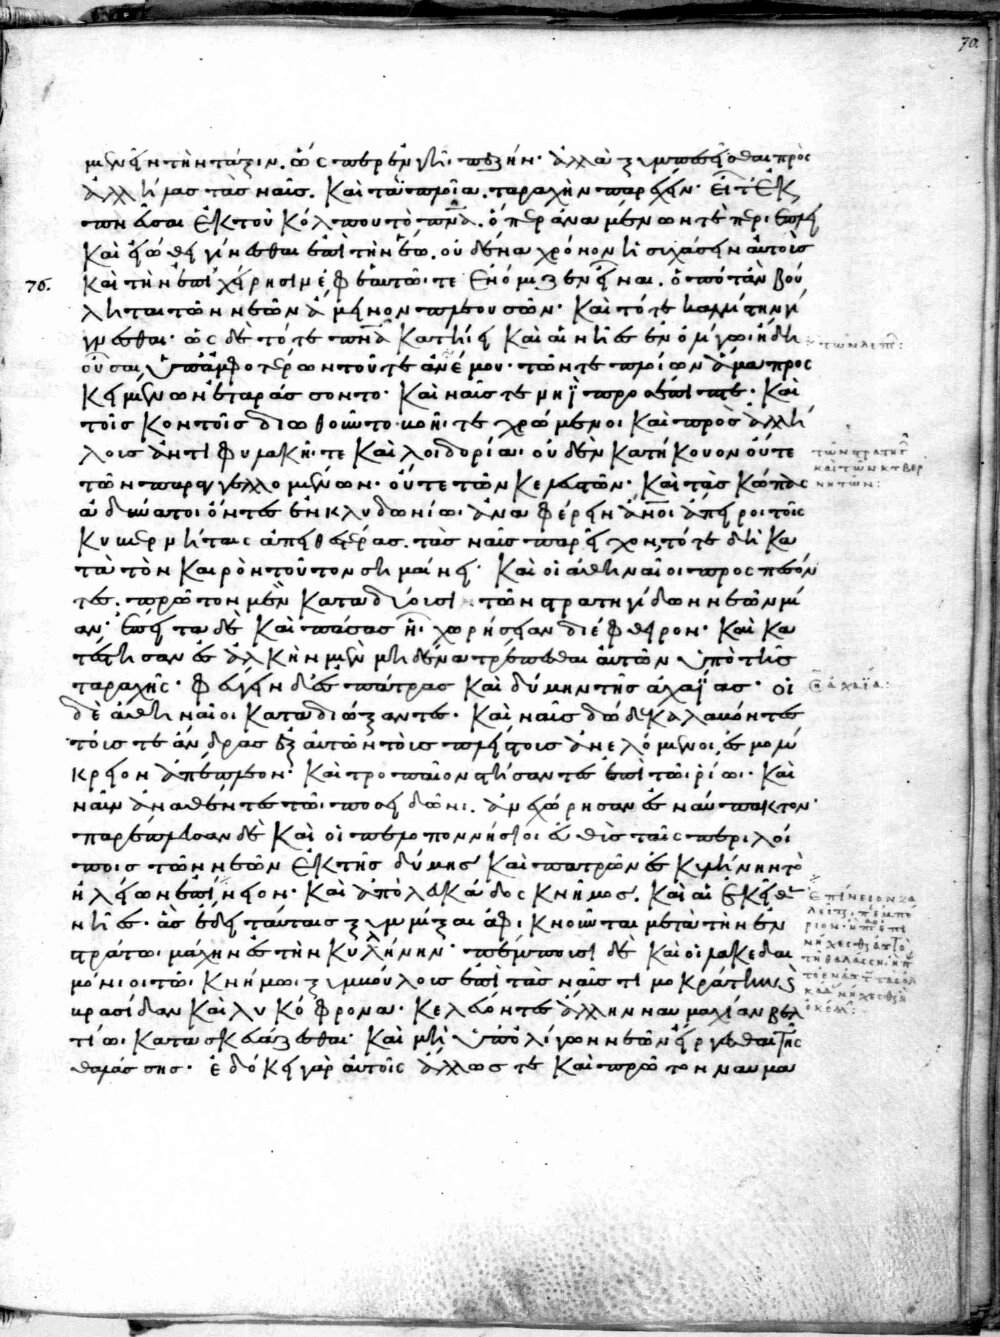 μενεῖν τὴν τάξιν. ὥσπερ ἐν γῆι πεζήν· ἀλλὰ ξυμπεσεῖσθαι πρὸς
ἀλλήλας τὰς ναῦς. καὶ τὰ πλοῖα. ταραχὴν παρέξειν· εἴτ' ἐκ
πνεύσαι ἐκ τοῦ κόλπου τὸ πν̅α. ὅπερ ἀναμένων τὲ περιέπλει
καὶ εἰώθει γίνεσθαι ἐπὶ τὴν ἕω. οὐδένα χρόνον ἡσυχάσειν αὐτοὺς
76. καὶ τὴν ἐπιχείρησιν ἐφ' ἑαυτῶι τε ἐνόμιζεν εἶναι. ὁπόταν βού
ληται τῶν νεῶν ἄμεινον πλεουσῶν· καὶ τότε καλλίστην γί
γνεσθαι· ὡς δὲ τό τε πν̅α κατήιει καὶ αἱ νῆες ἐν ὀλίγωι ἤδη
οὖσαι ὑπ' ἀμφοτέρων τοῦ τε ἀνέμου· τῶν τε πλοίων ἅμα προς
κειμένων ἐταράσσοντο· καὶ ναῦς τε νηῒ προσέπιπτε· καὶ
τοῖς κοντοῖς διωθοῦντο· βοῆι τε χρώμενοι καὶ πρὸς ἀλλή
λους ἀντιφυλακῆι τε καὶ λοιδορίαι οὐδὲν κατήκουον οὔτε
τῶν παραγγελλομένων· οὔτε τῶν κελευστῶν· καὶ τὰς κώπας
ἀδύνατοι ὄντες ἐν κλυδωνίωι ἀναφέρειν ἄν̅οι ἄπειροι τοῖς
κυβερνήταις ἀπειθεστέρας τὰς ναῦς παρεῖχον, τότε δὴ κα
τὰ τὸν καιρὸν τοῦτον σημαίνει· καὶ οἱ ἀθηναῖοι προσπεσόν
τες. πρῶτον μὲν καταδύουσι τῶν στρατηγίδων νεῶν μί
αν· ἔπειτα δὲ καὶ πάσας ἧι χωρήσειαν διέφθειρον· καὶ κα
τέστησαν ἐς ἀλκὴν μὲν μηδένα τρέπεσθαι αὐτῶν ὑπὸ τῆς
ταραχῆς· φεύγειν δ' ἐς πάτρας καὶ δύμην τῆς ἀχαΐας· οἱ
δὲ ἀθηναῖοι καταδιώξαντες· καὶ ναῦς δώδεκα λαβόντες
τούς τε ἄνδρας ἐξ αὐτῶν τοὺς πλείστους ἀνελόμενοι ἐς μολύ
κρειον ἀπέπλεον· καὶ τροπαῖον στήσαντες ἐπὶ τῶι ῥίωι· καὶ
ναῦν ἀναθέντες τῶι ποσειδῶνι. ἀνεχώρησαν ἐς ναύπακτον·
παρέπλευσαν δὲ καὶ οἱ πελοποννήσιοι εὐθὺς ταῖς περιλοί
ποις τῶν νεῶν ἐκ τῆς δύμης καὶ πατρῶν ἐς κυλλήνην τὸ
ἠλείων ἐπίνειον· καὶ ἀπὸ λευκάδος κνῆμος. καὶ αἱ ἐκεῖθεν
νῆες· ἃς ἔδει ταύταις ξυμμίξαι ἀφικνοῦνται μετὰ τὴν ἐν
στράτωι μάχην ἐς τὴν κυλλήνην· πέμπουσι δὲ καὶ οἱ λακεδαι
μόνιοι τῶι κνήμωι ξυμβούλους ἐπὶ τὰς ναῦς τιμοκράτην καὶ
βρασίδαν καὶ λυκόφρονα· κελεύοντες ἄλλην ναυμαχίαν βελ
τίω κατασκευάζεσθαι· καὶ μὴ ὑπ' ὀλίγων νεῶν εἴργεσθαι τῆς
θαλάσσης· ἐδόκει γὰρ αὐτοῖς ἄλλως τε καὶ πρῶτον ναυμα
70.
τῶν στρατηγ
καὶ τῶν κυβερ
νητῶν:
ἀχαΐα:
ἐπίνειον